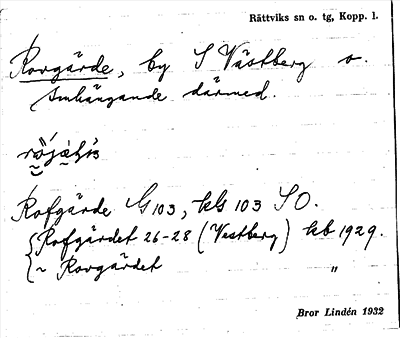 Rättviks sn o. tg, Kopp. l.
Rovgärde, by S Västberg o.
smhängande därmed.
Rofgärde G 103, kls 103 SO.
{Rofgärdet 26-28 (Vestberg) kb 1929.
{~ Rovgärdet "
Bror Lindén 1932